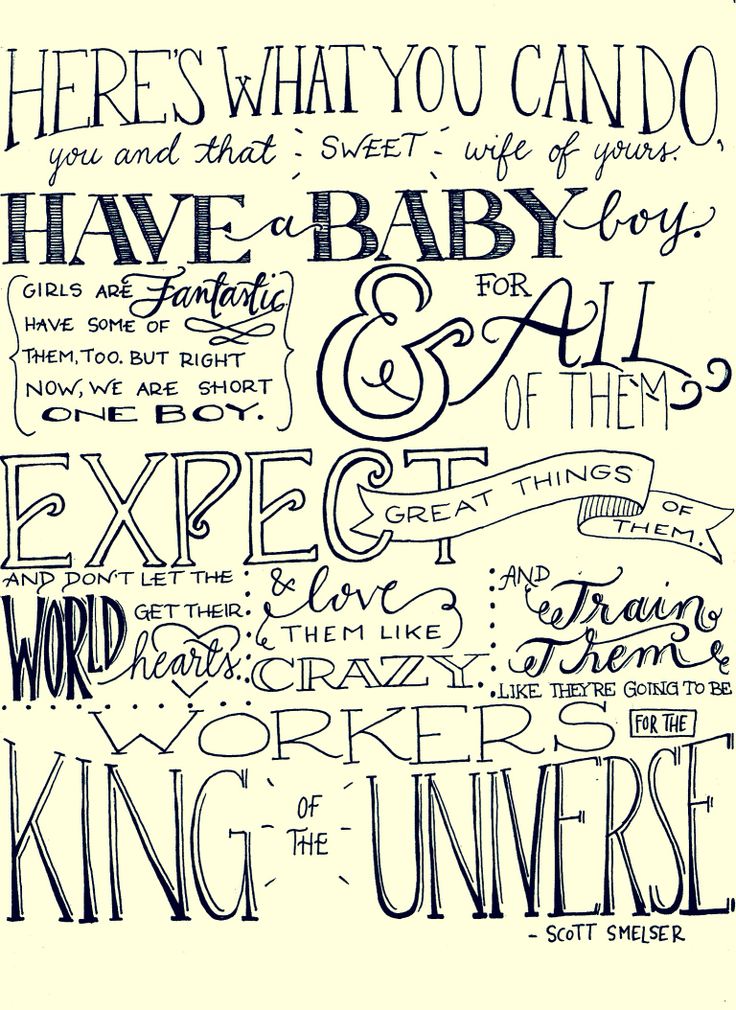 HERE'S WHAT YOU CAN DO,
you and that SWEET wife of yours.
HAVE a BABY boy.
GIRLS ARE Fantastic
HAVE SOME OF
THEM, TOO. BUT RIGHT
NOW, WE ARE SHORT
ONE BOY.
& FOR ALL
OF THEM
EXPECT GREAT THINGS OF THEM.
AND DON'T LET THE
WORLD GET THEIR
hearts.
& love
THEM LIKE
CRAZY.
AND Train
Them
LIKE THEY'RE GOING TO BE
WORKERS FOR THE
KING OF THE UNIVERSE.
- SCOTT SMELSER